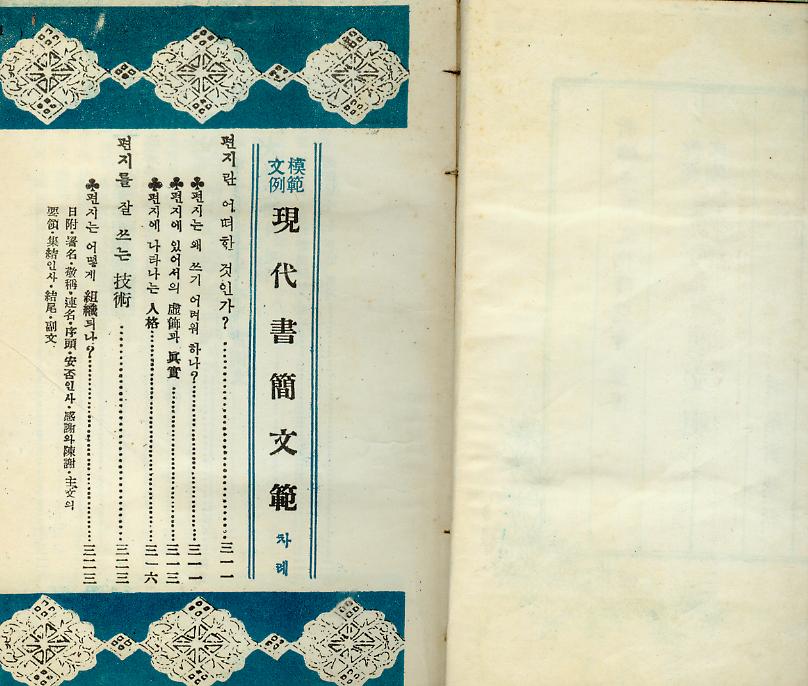 模範
文例
現代書簡文範 차례
편지란 어떠한 것인가?……三一一
♣편지는 왜 쓰기 어려워 하나?……三一一
♣편지에 있어서의 虛飾과 眞實……三一三
♣편지에 나타나는 人格……三一六
편지를 잘 쓰는 技術……三二三
♣편지는 어떻게 組織되나?……三二三
日附·署名·敬稱·連名·序頭·安否인사·感謝와 陳謝·主文의
要領·集結인사·結尾·副文